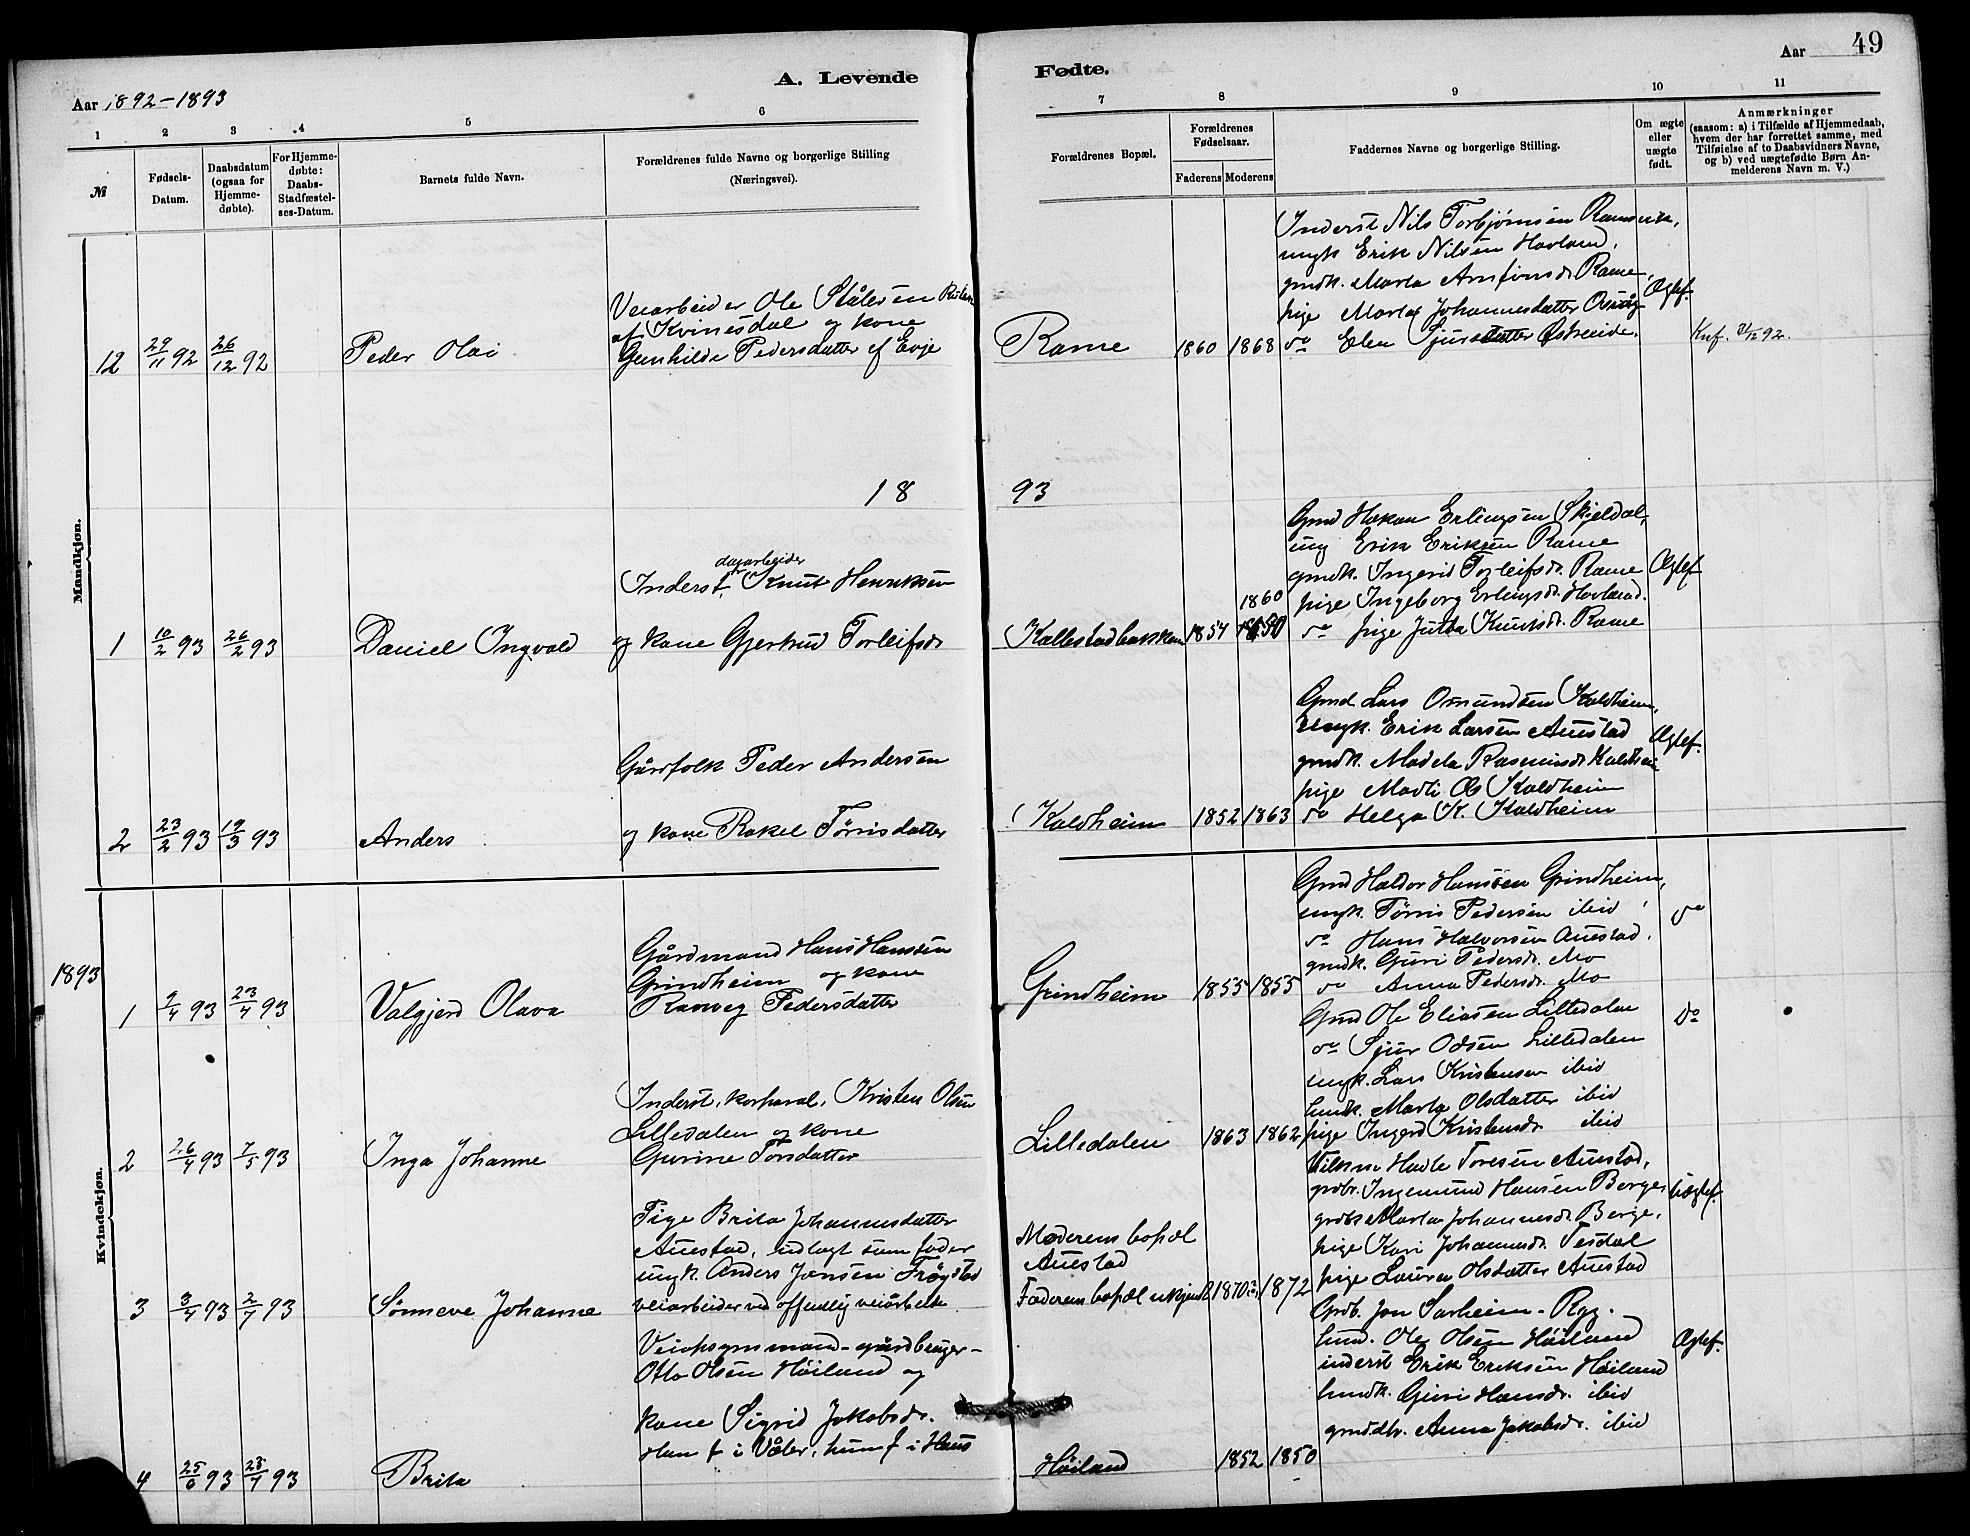 49
A. Levende Fødte.
Aar 1892-1893
Aar
1 2 3 4 5 6 7 8 9 10 11
№
Fødsels-
Datum.
Daabsdatum
(ogsaa for
Hjemme-
døbte).
For Hjemme-
døbte:
Daabs-
Stadfæstel-
ses-Datum.
Barnets fulde Navn.
Forældrenes fulde Navne og borgerlige Stilling
(Næringsvei).
Forældrenes Bopæl.
Forældrenes
Fødselsaar.
Faderens Moderens
Faddernes Navne og borgerlige Stilling.
Om ægte
eller
uægte
født.
Anmærkninger
(saasom: a) i Tilfælde af Hjemmedaab,
hvem der har forrettet samme, med
Tilføielse af to Daabsvidners Navne,
og b) ved uægtefødte Børn An-
melderens Navn m. V.)
Mandkjøn.
12 29/11 92 26/12 92
Peder Olai
Veiarbeider Ole Stålesen
af Kvinesdal og kone
Gunhilde Pedersdatter af Evje
Rame
1860 1868
Inderst Nils Torbjørnsen Ramsvik,
ungk. Erik Nilsen Hovland,
gmdk. Marta Arnfinnsdr Rame,
pige Marta Johannesdatter Osvåg
do Elen Sjursdatter Østreide.
Ægtef.
Knf. 31/12 92.
18 93
1 10/2 93 26/2 93
Daniel Ingvald
dagarbeider
Inderst, Knut Henriksen
og kone Gjertrud Torleifsdr
Kallestadbakken
1860
1854 1850
Gmd Hakon Erlingsen Skjeldal,
ung Erik Eriksen Rame
gmdk. Ingerid Torleifsdr. Rame
pige Ingeborg Erlingsdr. Hovland.
do pige Jutta Knutsdr. Rame
Ægtef
2 23/2 93 19/3 93
Anders
Gårdfolk Peder Andersen
og kone Rakel Tørrisdatter
Kaldheim
1852 1863
Gmd Lars Omundsen Kaldheim,
ungk. Erik Larsen Auestad
gmdk. Madela Rasmusdr Kaldheim
pige Marti Os Kaldheim
do Helga K. Kaldheim
Ægtef.
1893
Kvindekjøn.
1 9/4 93 23/4 93
Valgjerd Olava
Gårdmand Hans Hansen
Grindheim og kone
Ranveg Pedersdatter
Grindheim
1855 1855
Gmd Haldor Hansen Grindheim,
ungk. Tørris Pedersen ibid,
do Hans Halvorsen Auestad,
gmdk. Guri Pedersdr. Mo
do Anna Pedersdr. Mo
do
2 26/4 93 7/5 93
Inga Johanne
Inderst, korporal, Kristen Olsen
Lilledalen og kone
Gurine Torsdatter
Lilledalen
1863 1862
Gmd Ole Eliasen Lilledalen
do Sjur Odsen Lilledalen
ungk. Lars Kristensen ibid
husmk. Marta Olsdatter ibid
pige Ingerd Kristensdr ibid
Do
3 3/4 93 2/7 93
Sønneve Johanne
Pige Brita Johannesdatter
Auestad, udlagt som fader
ungk. Anders Jensen Frøystad
veiarbeider ved offentlig veiarbeide.
Moderens bopæl
Auestad
Faderens bopæl ukjendt
1870 1872
Hadle Toresen Auestad,
grdbr. Ingemund Hansen Berge,
grdbk Marta Johannesdr Berge,
pige Kari Johannesdr. Tesdal
pige Laura Olsdatter Auestad
Uægtef.
4 25/6 93 23/7 93
Brita
Veiopsynsmand - gårdbruger -
Otto Olsen Høiland og
kone Sigrid Jakobsdr.
Han f i Våler, hun f i Haus
Høiland
1852 1850
Grdb. Jon Sarheim - Ryg.
husm. Ole Olsen Høiland
inderst Erik Eriksen Høiland
husmk. Guri Hansdr. ibid
gmddtr. Anna Jakobsdr. ibid
Ægtef.